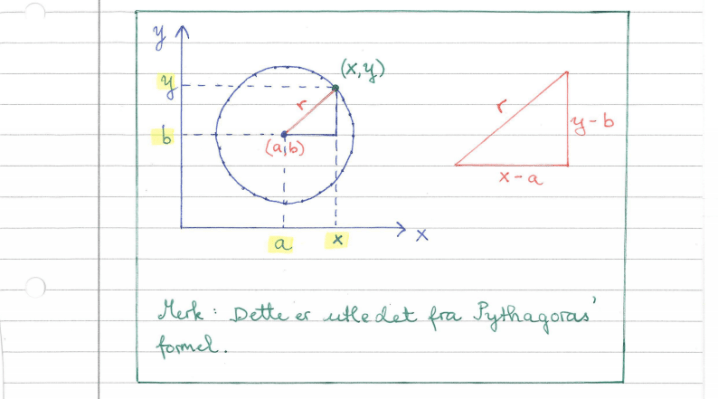 y
(x,y)
y
r
r
b
y-b
(a,b)
x-a
a
x
x
Merk: Dette er utledet fra Pythagoras'
formel.